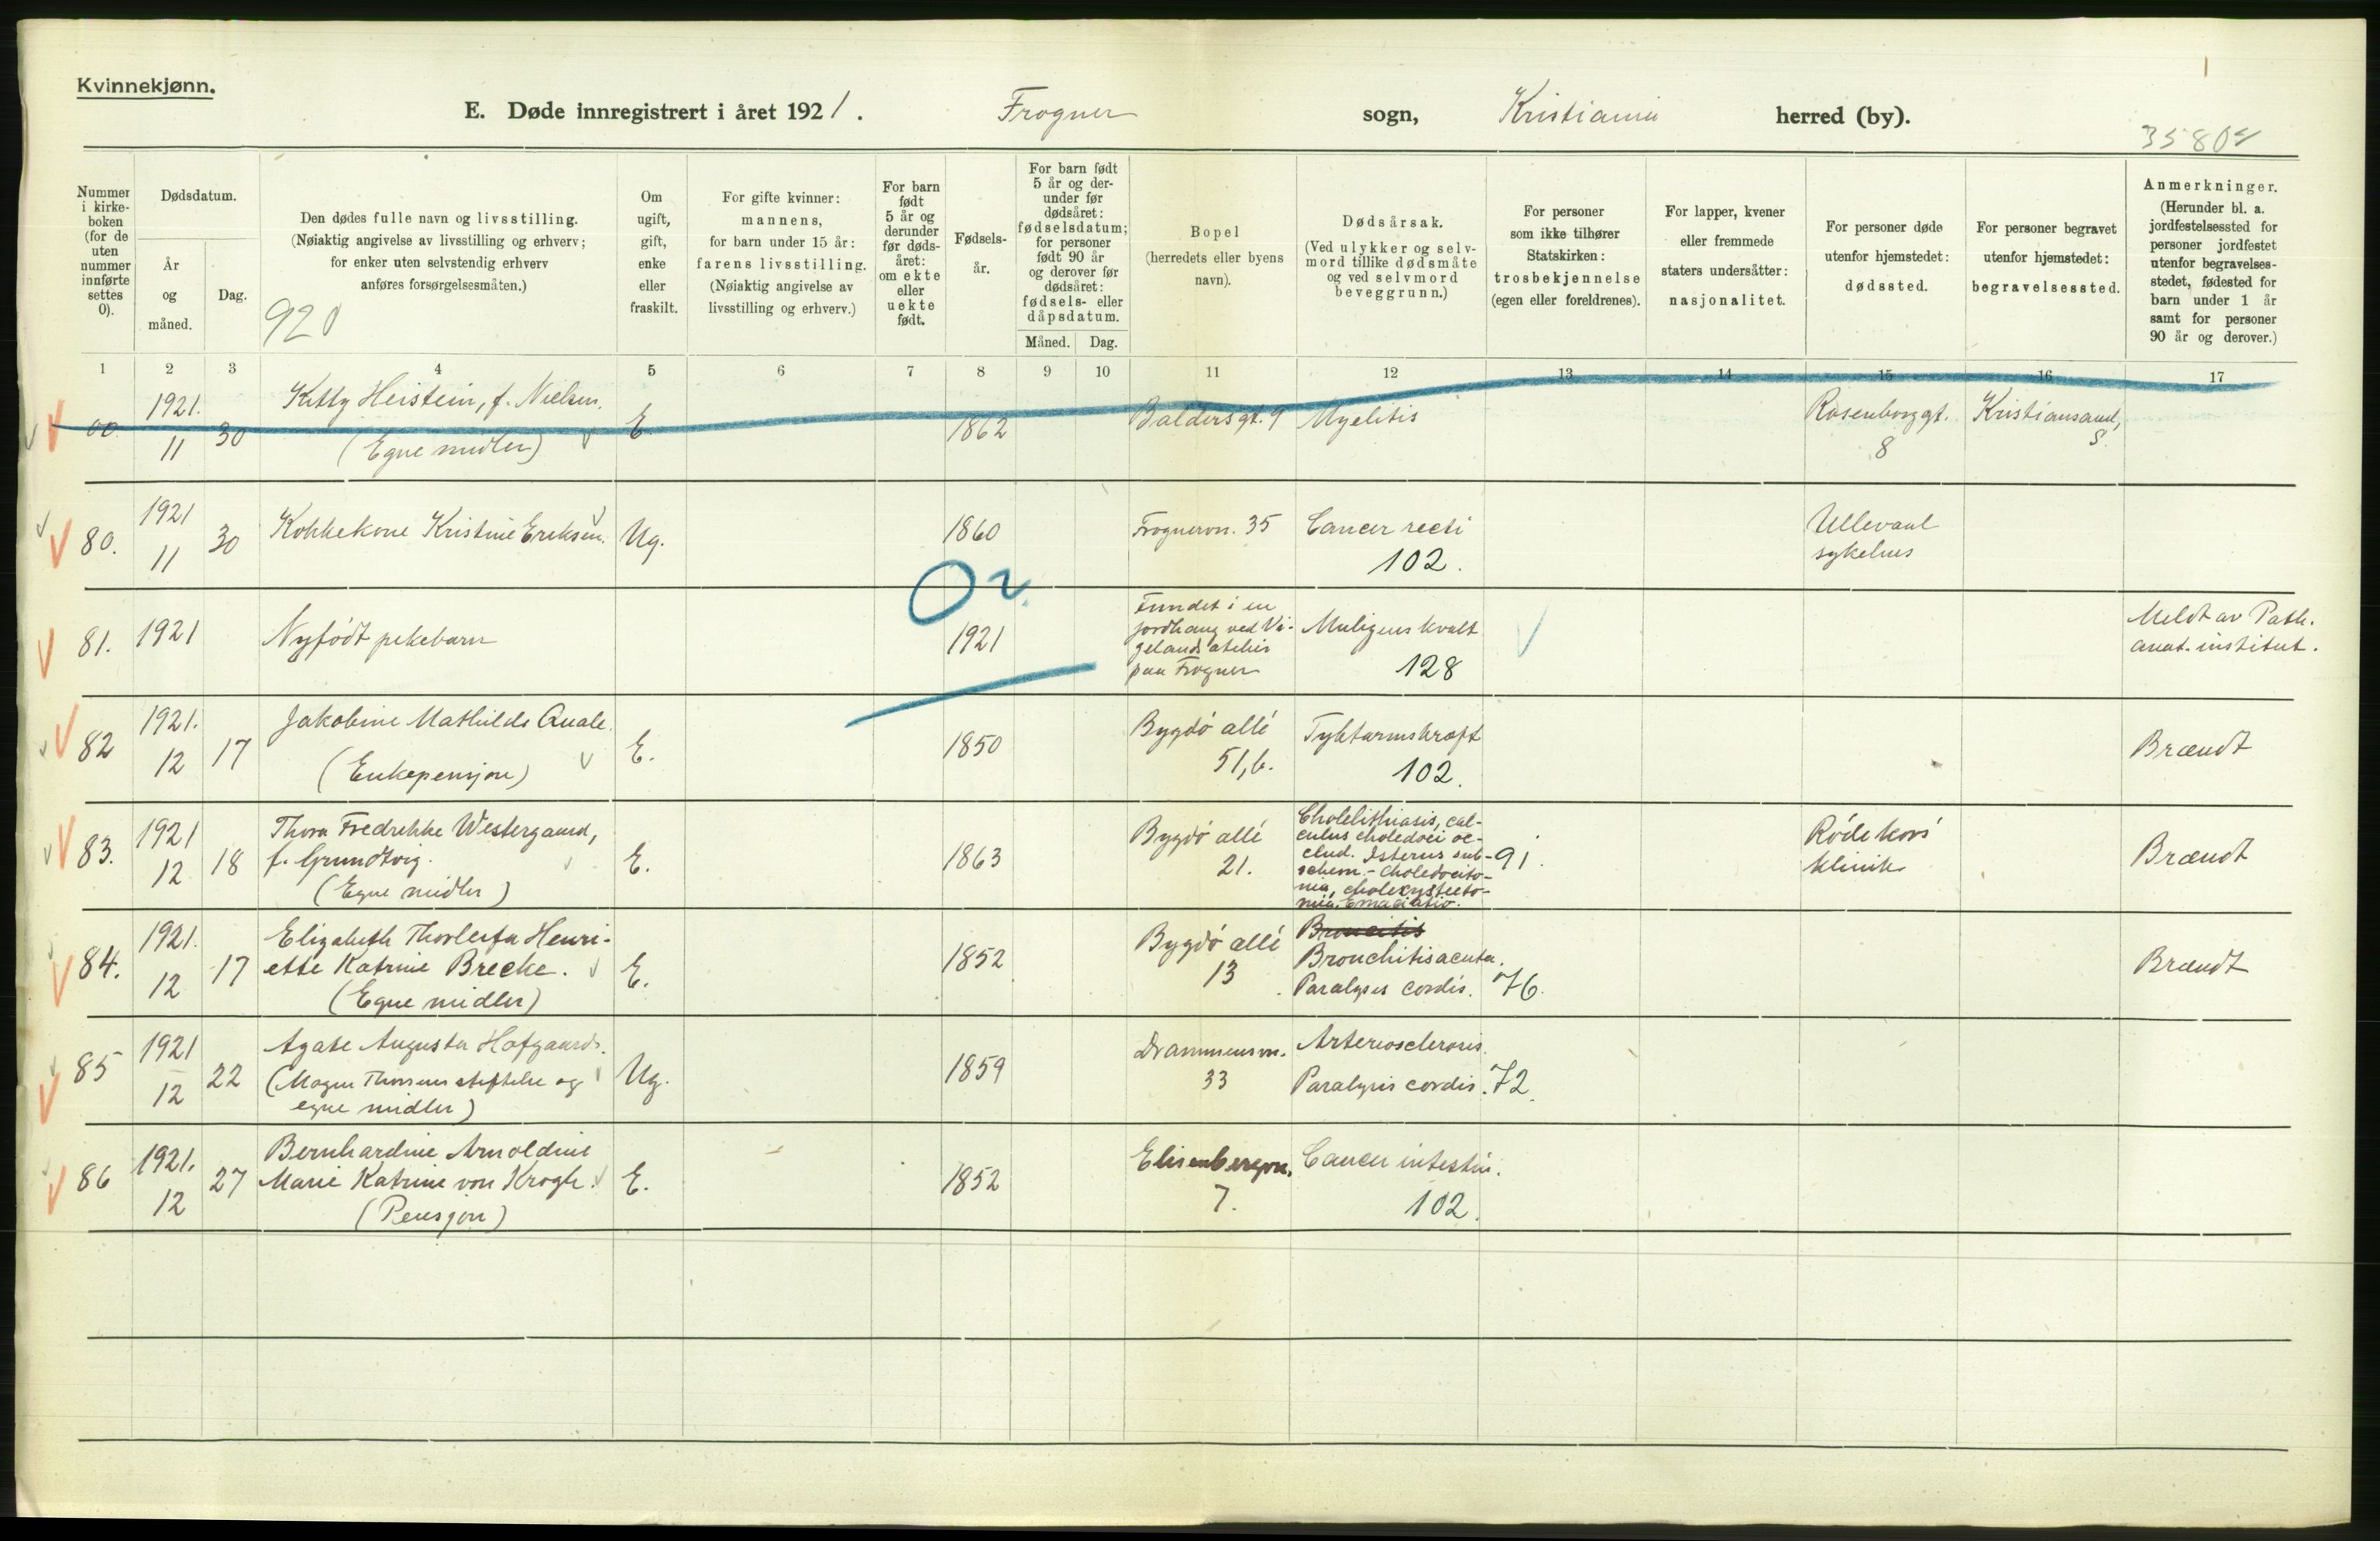 Kvinnekjønn.
E. Døde innregistrert i året 1921. Frogner sogn, Kristiania herred (by).
35804
Nummer i kirkeboken (for de uten nummer innførte settes 0).
Dødsdatum.
År og måned.
Dag.
Den dødes fulle navn og livsstilling.
(Nøiaktig angivelse av livsstilling og erhverv;
for enker uten selvstendig erhverv
anføres forsørgelsesmåten.)
920
Om ugift, gift, enke eller fraskilt.
For gifte kvinner:
mannens,
for barn under 15 år:
farens livsstilling.
(Nøiaktig angivelse av
livsstilling og erhverv.)
For barn født 5 år og derunder før dødsåret: om ekte eller uekte født.
Fødselsår.
For barn født 5 år og derunder før dødsåret: fødselsdatum; for personer født 90 år og derover før dødsåret: fødsels- eller dåpsdatum.
Måned. Dag.
Bopel
(herredets eller byens
navn).
Dødsårsak.
(Ved ulykker og selvmord tillike dødsmåte
og ved selvmord
beveggrunn.)
For personer
som ikke tilhører
Statskirken:
trosbekjennelse
(egen eller foreldrenes).
For lapper, kvener
eller fremmede
staters undersåtter:
nasjonalitet.
For personer døde
utenfor hjemstedet:
dødssted.
For personer begravet
utenfor hjemstedet:
begravelsessted.
Anmerkninger.
(Herunder bl. a.
jordfestelsessted for
personer jordfestet
utenfor begravelses-
stedet, fødested for
barn under 1 år
samt for personer
90 år og derover.)
1 2 3 4 5 6 7 8 9 10 11 12 13 14 15 16 17
1921. 11 30 Kitty Heistein, f. Nielsen.
(Egne midler) E 1862 Baldersgt. 9 Myelitis Rosenborggt. 8 Kristiansand, S.
80. 1921 11 30 Kokkekone Kristine Eriksen. Ug. 1860 Frognervn. 35 Cancer recti
102.
Ullevaal
sykehus
81. 1921 Nyfödt pikebarn 1921
Fundet i en
jordhaug ved Vi-
gelands atelier
paa Frogner
Muligens kvalt
128
Meldt av Path.
anat. institut.
82 1921. 12 17 Jakobine Mathilde Quale.
(Enkepensjon) E. 1850 Bygdö allé
51, b.
Tyktarmskræft
102.
Brændt
83. 1921 12 18 Thora Fredrikke Westergaard,
f. Grundtvig.
(Egne midler) E. 1863 Bygdö allé
21.
Cholelithiasis, cal-
culus choledoci oc-
clud. Icterus 91.
Emaciatio.
Röde kors'
klinik
Brændt
84. 1921. 12 17 Elizabeth Thorleifa Henri-
ette Katrine Brecke.
(Egne midler) E. 1852 Bygdö allé
13
Bronchitis acuta.
Paralysis cordis. 76.
Brændt
85 1921 12 22 Agate Augusta Hofgaard.
(Magna Thorsens stiftelse og
egne midler) Ug. 1859 Drammensvn.
33
Arteriosclerosis.
Paralysis cordis. 72.
86 1921. 12 27 Bernhardine Arnoldine
Marie Katrine von Krogh.
(Pensjon) E. 1852 Elisenbergvn.
7.
Cancer intestin.
102.